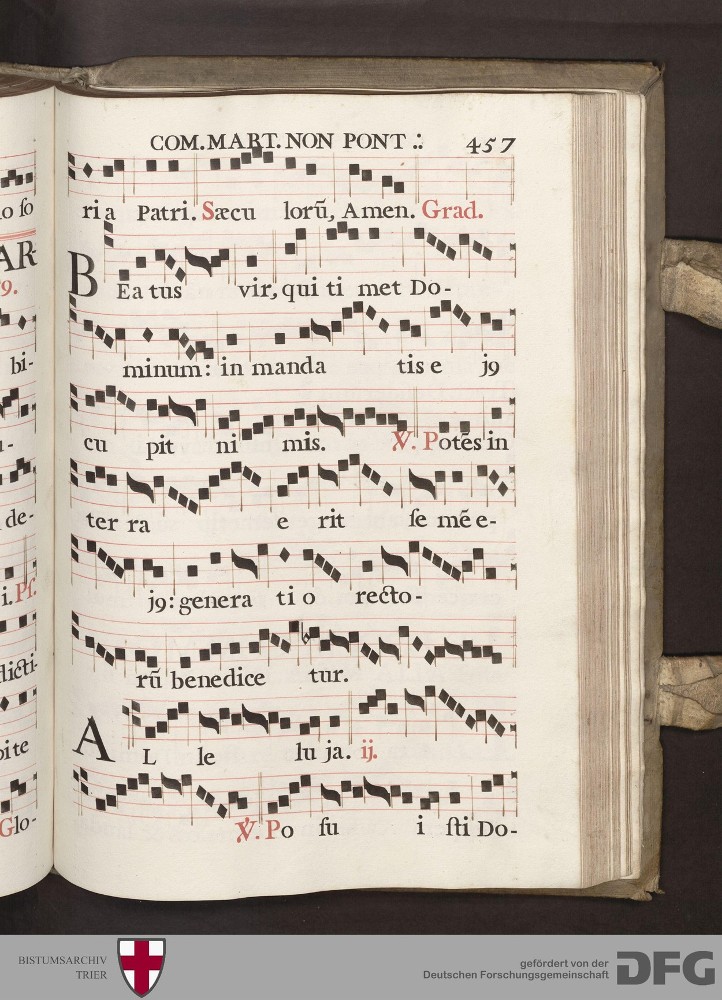 COM. MART. NON PONT ∴ 457
ria Patri. Sæcu lorū, Amen. Grad.
BEa tus vir, qui ti met Do-
minum: in manda tis e j9
cu pit ni mis. ℣. Potēs in
ter ra e rit ſe mē e-
j9: genera ti o recto-
rū benedice tur.
AL le lu ja. ij.
℣. Po fu i ſti Do-
lo ſo
AR
9.
bi-
de-
i. Pſ.
dicti-
bite
Glo-
BISTUMSARCHIV
TRIER
gefördert von der
Deutschen Forschungsgemeinschaft
DFG